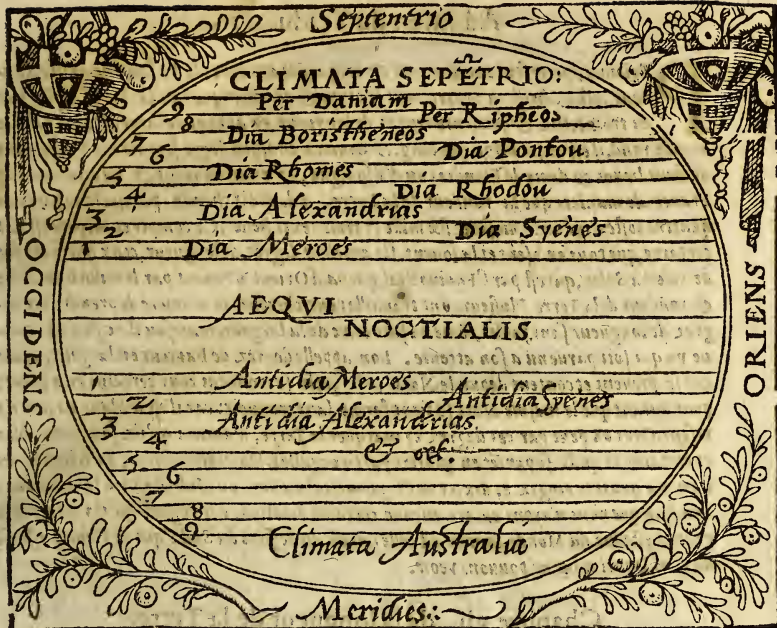 Septentrio
CLIMATA SEPĒTRIO:
9 Per Daniam
8 Per Ripheos
7 Dia Boristheneos
6 Dia Pontou
5 Dia Rhomes
4 Dia Rhodou
3 Dia Alexandrias
2 Dia Syenes
1 Dia Meroes
OCCIDENS
ORIENS
AEQVI
NOCTIALIS
1 Antidia Meroes
2 Antidia Syenes
3 Antidia Alexandrias
4
& cet:
5
6
7
8
9
Climata Australia
Meridies: